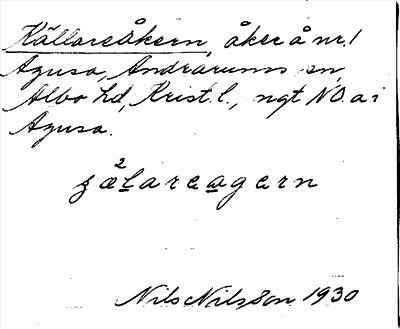 Källareåkern, åker å nr. 1
Agusa, Andrarums sn,
Albo hd, Krist. l., ngt NO. a i
Agusa.
2
Nils Nilsson 1930